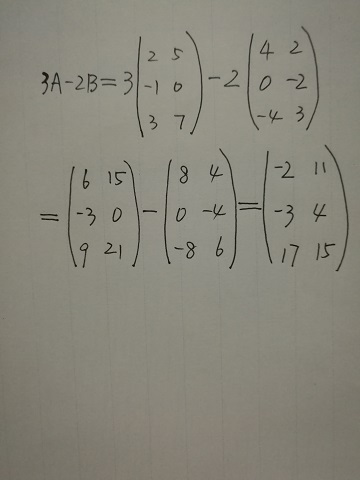 3A-2B=3(2 5
-1 0
3 7)-2(4 2
0 -2
-4 3)
=(6 15
-3 0
9 21)-(8 4
0 -4
-8 6)=(-2 11
-3 4
17 15)